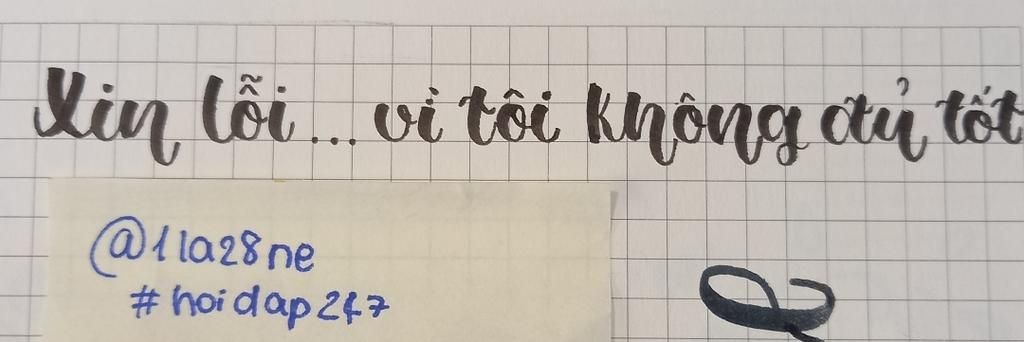 Xin lỗi... vì tôi không đủ tốt
@1la28ne
#hoidap247